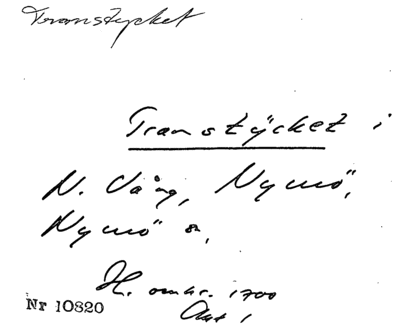 Transtycket
Transtycket i
N. Vång, Nymö,
Nymö s,
H. omkr. 1700
Akt 1
Nr 10820